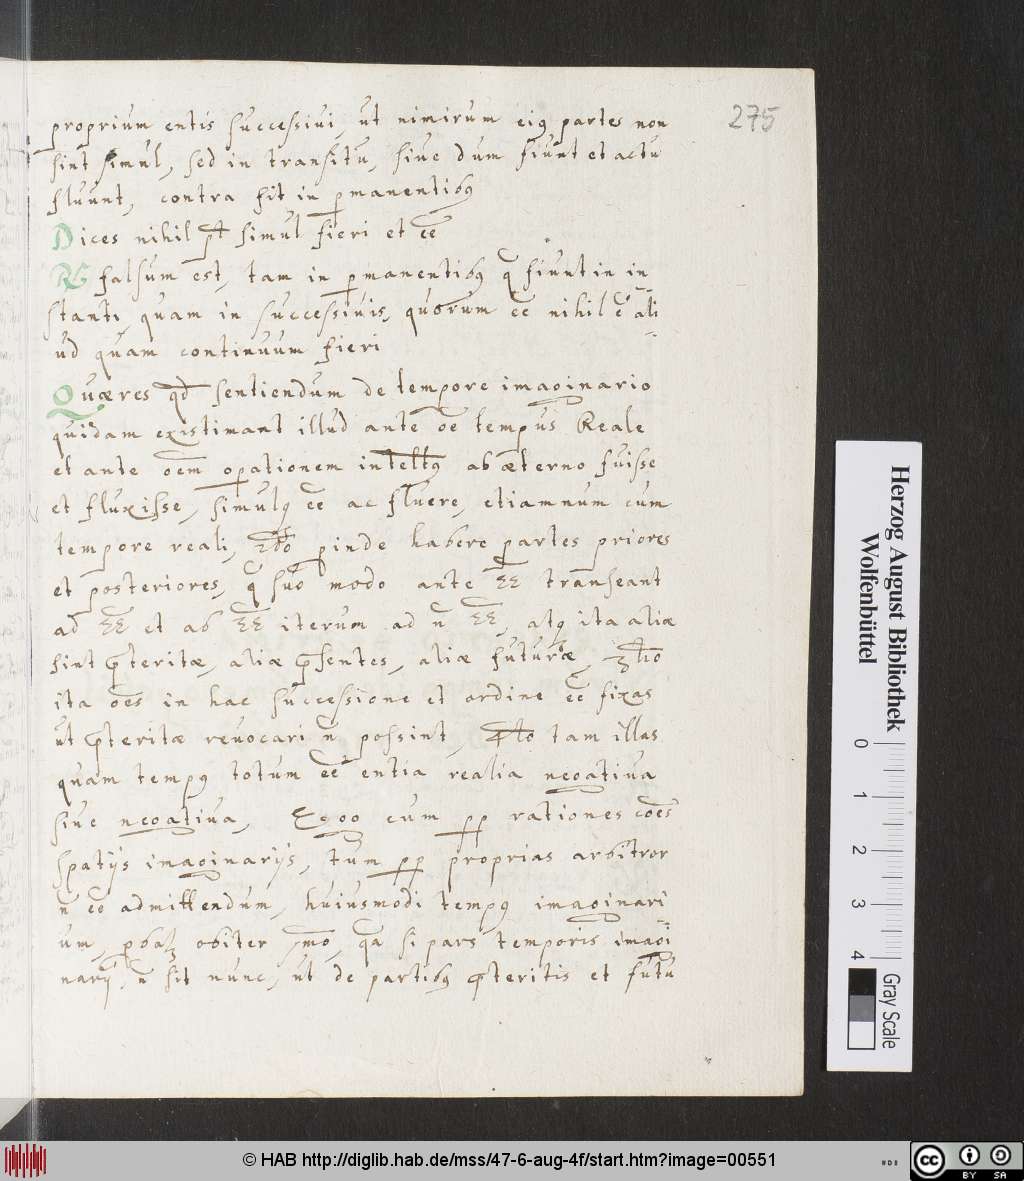 275
proprium entis successiui, ut nimirum eiꝯ partes non
sint simul, sed in transitu, siue dum fiunt et actu
fluunt, contra fit in ꝑmanentibꝯ
Dices nihil pt simul fieri et eē
℞ falsum est, tam in ꝑmanentibꝯ q̄ fiunt in in-
stanti, quam in successiuis, quorum eē nihil ē ali-
ud quam continuum fieri
Quæres qd sentiendum de tempore imaginario
quidam existimant illud ante oē tempus Reale
et ante oēm oꝑationem intelltꝯ ab æterno fuisse
et fluxisse, simulq eē ac fluere, etiamnum cum
tempore reali, 2do ꝓinde habere partes priores
et posteriores, q̄ suo modo ante eē transeant
ad eē et ab eē iterum ad n̄ eē, atq ita aliæ
sint p̄teritæ, aliæ p̄sentes, aliæ futuræ, 3tio
ita oēs in hac successione et ordine eē fixas
ut p̄teritæ reuocari n̄ possint, 4to tam illas
quam tempꝯ totum eē entia realia negatiua
siue negatiua, Ego cum ꝓp rationes cōes
spatijs imaginarijs, tum ꝓp proprias arbitror
n̄ eē admittendum, huiusmodi tempꝯ imaginari-
um, ꝓbat obiter pmo, qa si pars temporis imagi-
narij n̄ sit nunc, ut de partibꝯ p̄teritis et futu
Herzog August Bibliothek
Wolfenbüttel
0 1 2 3 4
Gray Scale
© HAB http://diglib.hab.de/mss/47-6-aug-4f/start.htm?image=00551
cc BY SA